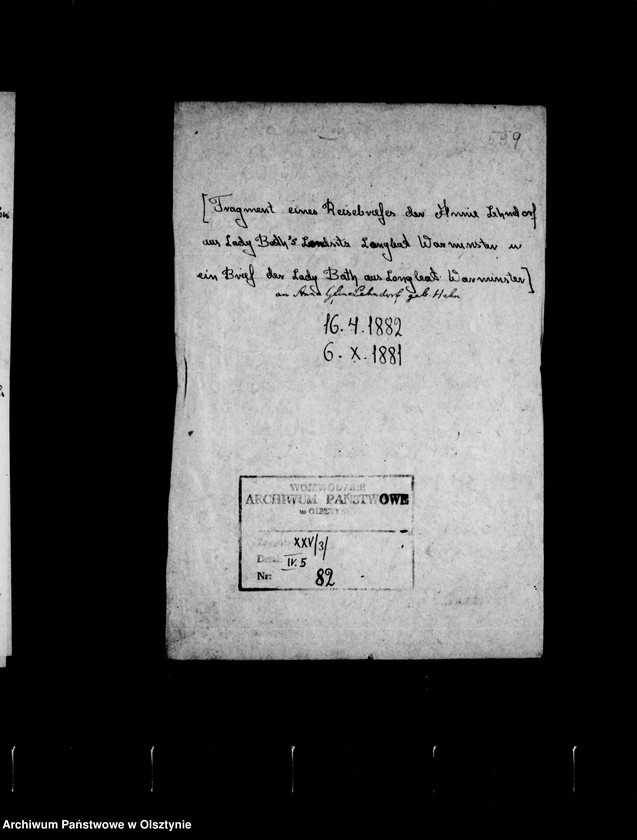 559
[Fragment eines Reisebriefes der Annie Lehndorf
aus Lady Bath's Landsitz Longleat Warminster u
ein Brief der Lady Bath aus Longleat Warminster]
an Anna Lehndorf geb. Hahn
16.4.1882
6.X.1881
WOJEWÓDZKIE
ARCHIWUM PAŃSTWOWE
w OLSZTYNIE
XXV/3/
IV.5
Nr: 82
Archiwum Państwowe w Olsztynie